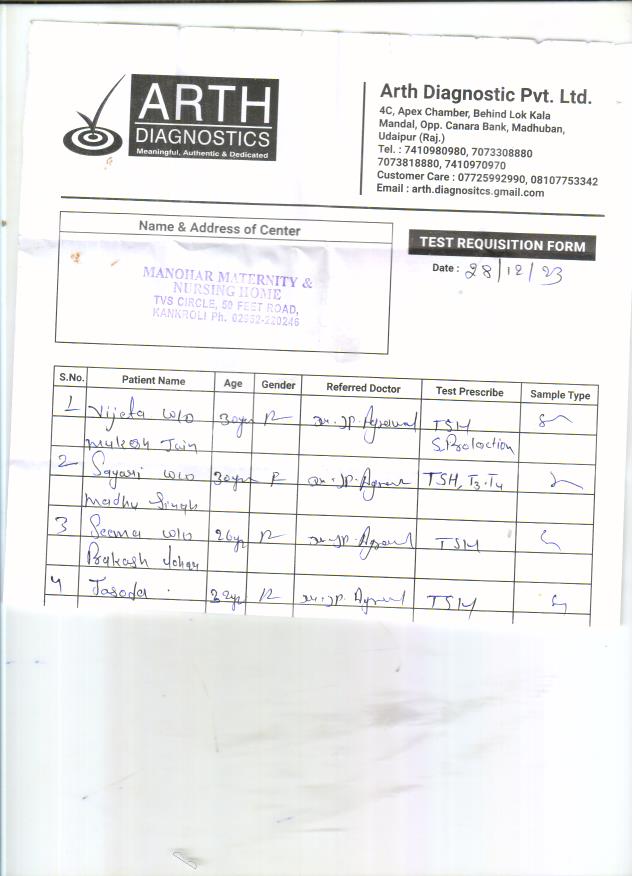 ARTH
DIAGNOSTICS
Meaningful, Authentic & Dedicated
Arth Diagnostic Pvt. Ltd.
4C, Apex Chamber, Behind Lok Kala
Mandal, Opp. Canara Bank, Madhuban,
Udaipur (Raj.)
Tel. : 7410980980, 7073308880
7073818880, 7410970970
Customer Care : 07725992990, 08107753342
Email : arth.diagnositcs.gmail.com
Name & Address of Center
MANOHAR MATERNITY &
NURSING HOME
TVS CIRCLE, 50 FEET ROAD,
KANKROLI Ph. 02952-220246
TEST REQUISITION FORM
Date : 28/12/23
S.No. Patient Name Age Gender Referred Doctor Test Prescribe Sample Type
1 Vijeta w/o 30yr Dr. J.P. Agrawal TSH
Mukesh Jain S. Prolaction
2 Sayari w/o 30yr F Dr. J.P. Agrawal TSH, T3, T4
Madhu Singh
3 Seema w/o 26yr Dr. J.P. Agrawal TSH
Prakash
4 Jasoda 32yr Dr. J.P. Agrawal TSH